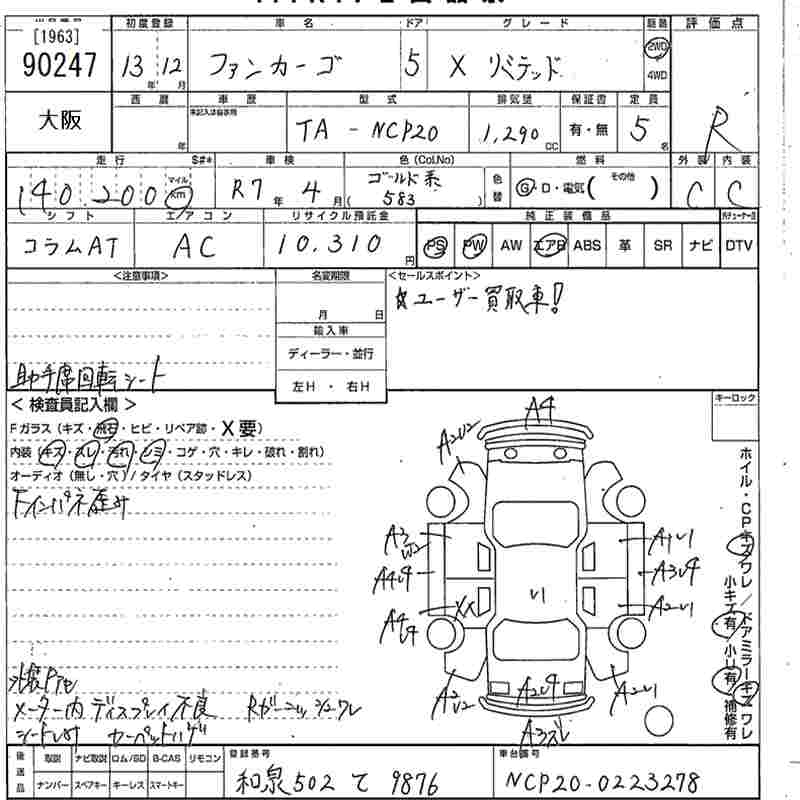 [1963]
90247
大阪
初度登録 車名 ドア グレード 駆動 評価点
13年 12月 ファンカーゴ 5 X リミテッド 2WD 4WD R
西暦 車歴 型式 排気量 保証書 定員
年 未記入は自家用 TA-NCP20 1,290 CC 有・無 5名
走行 S#* 車検 色(Col.No) 燃料 外装 内装
140200 マイル km R7年 4月 ゴールド系 (583) 色替 G・D・電気( その他 ) C C
シフト エアコン リサイクル預託金 純正装備品
コラムAT AC 10.310円 PS PW AW エアB ABS 革 SR ナビ DTV
<注意事項> 名変期限 <セールスポイント>
月 日 ☆ユーザー買取車!
輸入車
ディーラー・並行
左H・右H
助手席回転シート
<検査員記入欄> キーロック
Fガラス(キズ・飛石・ヒビ・リペア跡・X要)
内装(キズ・スレ・汚れ・シミ・コゲ・穴・キレ・破れ・割れ)
オーディオ(無し・穴)/タイヤ(スタッドレス)
ホイル・CPキズワレ/ドアミラーキズワレ
小キズ有 小U有 補修有
A4
A2U2
A3
U2
A1U1
A4U4
A3U4
U1
A4
U4
XX
A2U1
A2
U2
A2U4
A2U1
A3ズレ
メーター内ディスプレイ不良 Rガーニッシュワレ
カーペットハゲ
後送品 取説 ナビ取説 ロム/SD B-CAS リモコン 登録番号 車台番号
ナンバー スペアキー キーレス スマートキー 和泉502 て 9876 NCP20-0223278